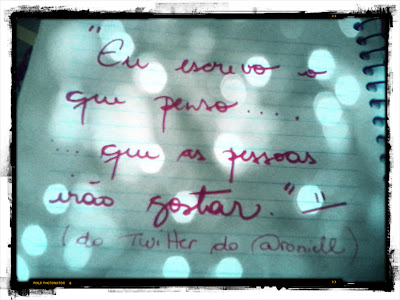 "Eu escrevo o
que penso.....
... que as pessoas
irão gostar." =)
(do Twitter do @roniell)